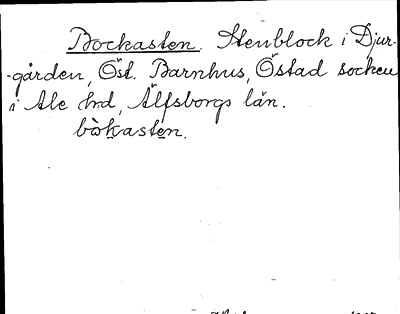 Bockasten. Stenblock i Djur-
gården, Öst. Barnhus, Östad socken
i Ale hrd, Älfsborgs län.
bòkasten.